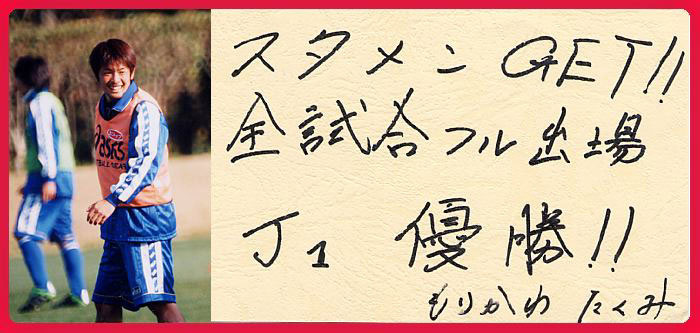 スタメン GET!!
全試合フル出場
J1 優勝!!
もりかわ たくみ
asics